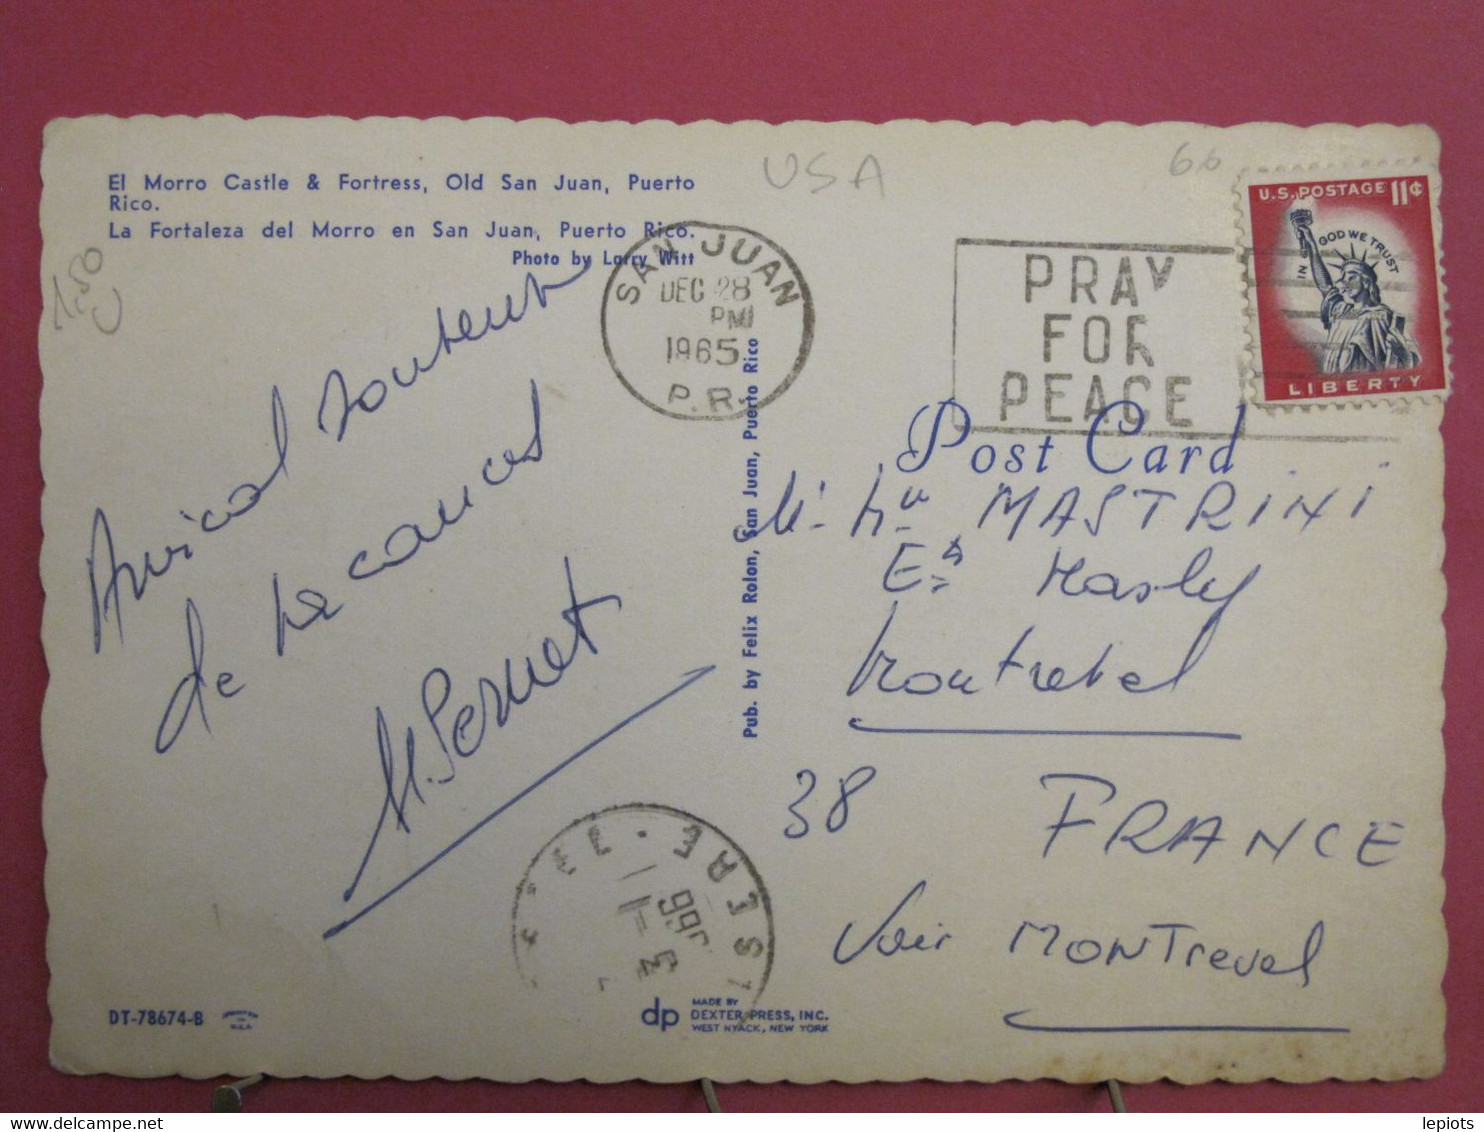 USA
60
El Morro Castle & Fortress, Old San Juan, Puerto
Rico.
La Fortaleza del Morro en San Juan, Puerto Rico.
Photo by Larry Witt
1,50
SAN JUAN
DEC 28
PM
1965
P.R.
PRAY
FOR
PEACE
U.S. POSTAGE 11¢
IN GOD WE TRUST
LIBERTY
Post Card
Amical
de
M. Pernet
MASTRINI
Montrevel
38 FRANCE
Voir MONTrevel
Pub. by Felix Rolon, San Juan, Puerto Rico
ISERE
3-1
1966
DT-78674-B
dp
MADE BY
DEXTER PRESS, INC.
WEST NYACK, NEW YORK
lepiots